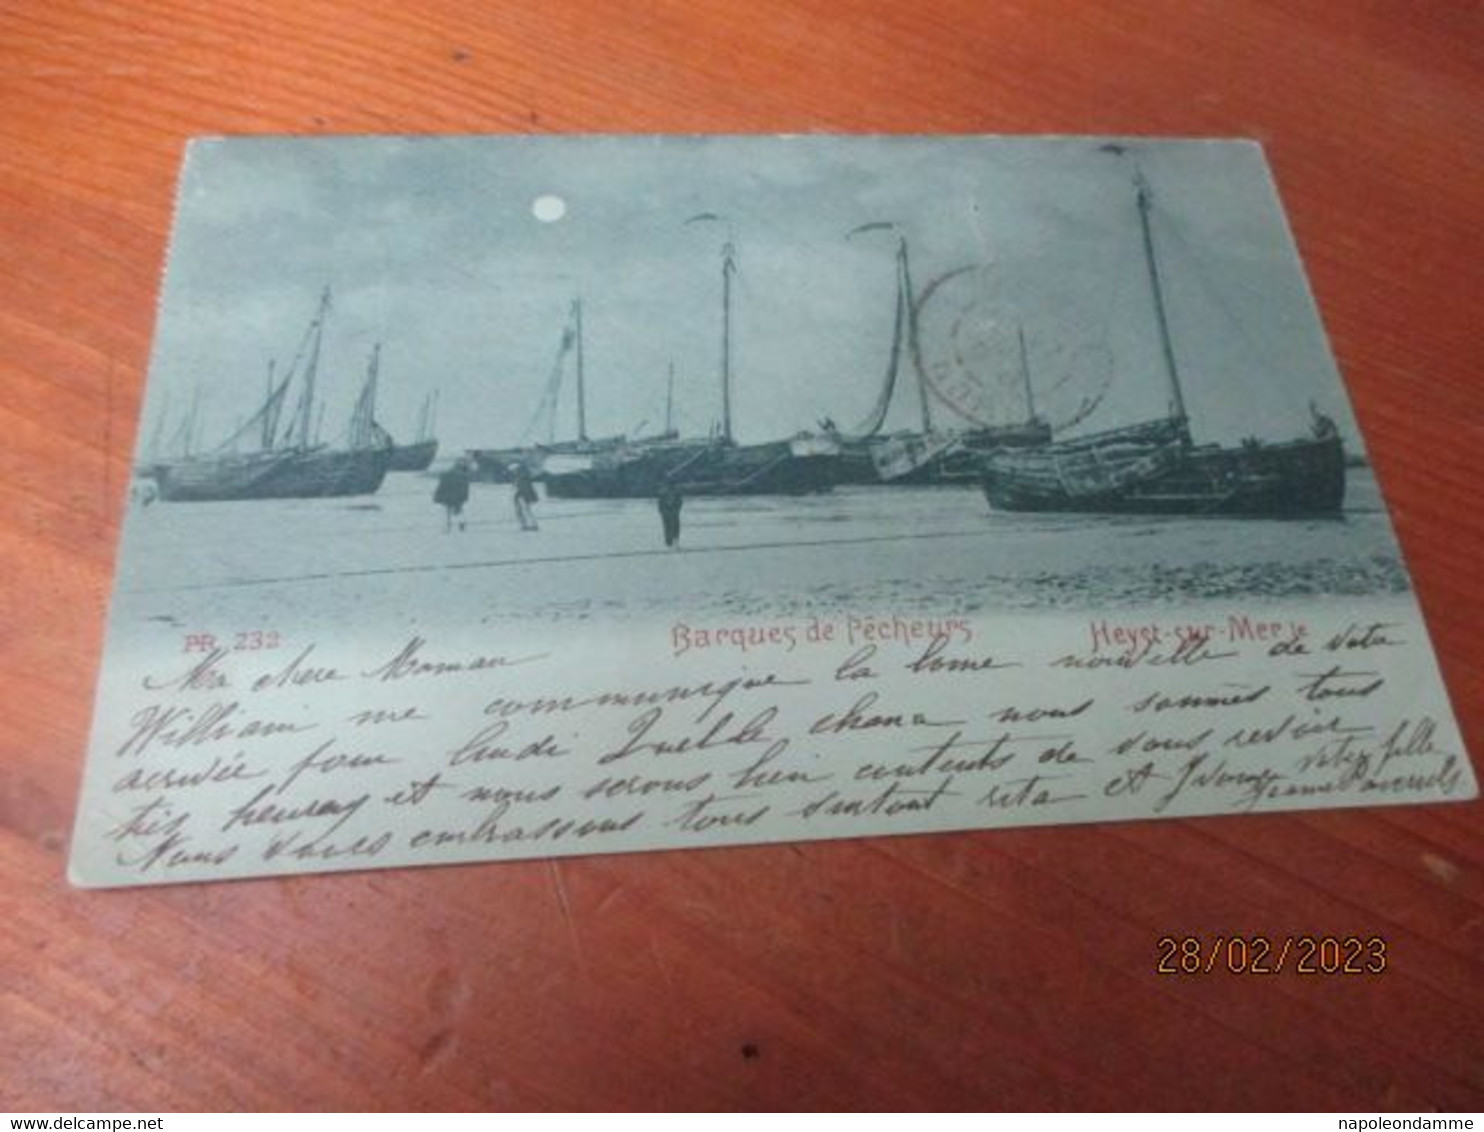 PR. 232
Barques de Pêcheurs
Heyst-sur-Mer
le
Ma chere Maman
William me communique la bonne nouvelle de votre
arrivée pour lundi Quelle chance nous sommes tous
très heureux et nous serons bien contents de vous revoir
Nous vous embrassons tous surtout rita et Yvonne votre fille
Jeanne
28/02/2023
delcampe.net
napoleondamme